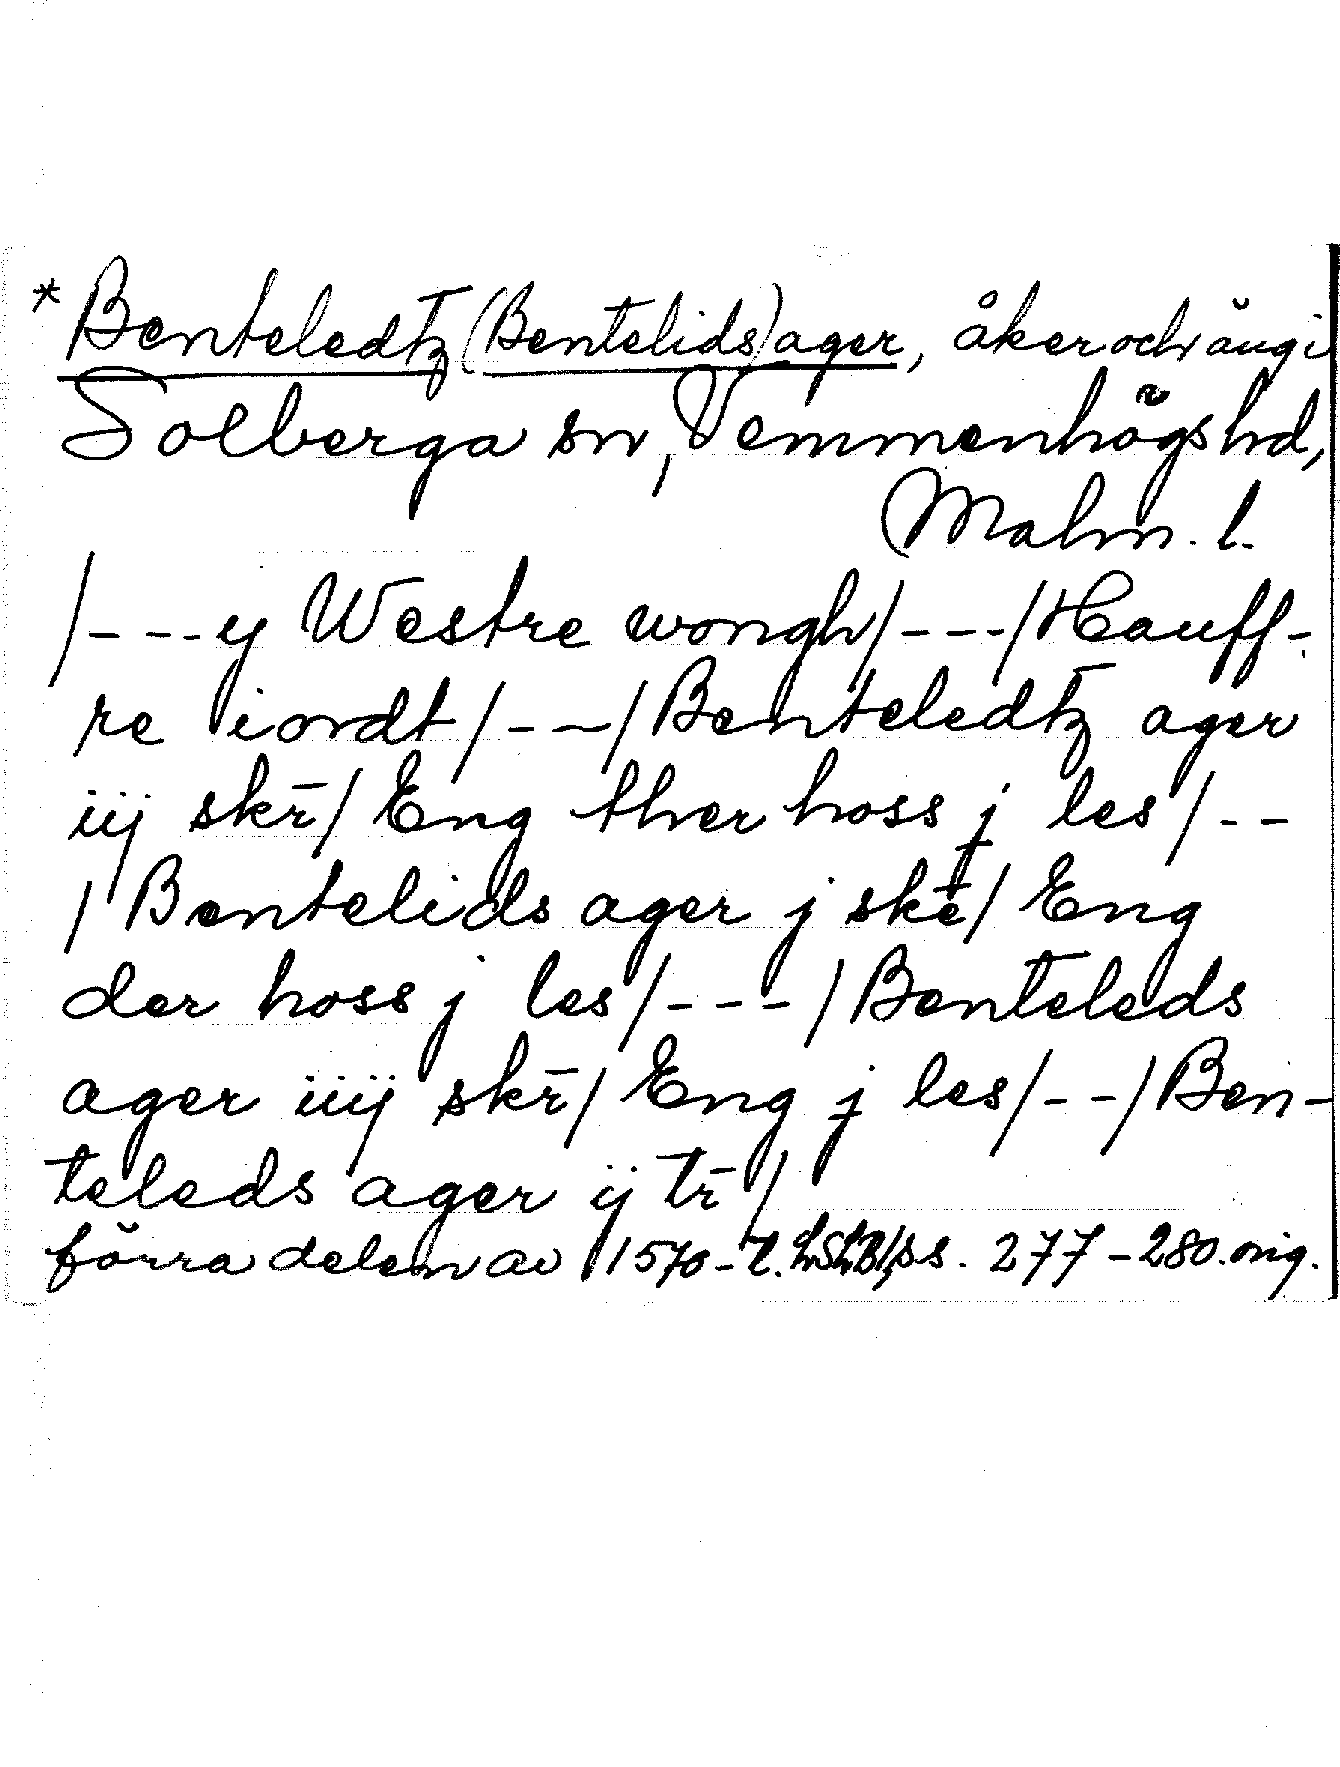 *Benteledtz (Bentelids) ager, åker och äng i
Solberga sn, Vemmenhögs hd,
Malm. l.
/---y Westre wongh/---/Hauff-
re iordt/---/Benteledtz ager
iij skr̄/Eng ther hoss j les/--
/Bentelids ager j skē/Eng
der hoss j les/---/Benteleds
ager iiij skr̄/Eng j les/--/Ben-
teleds ager ij tr̄/
förra delen av 1570-t. ss. 277-280. orig.